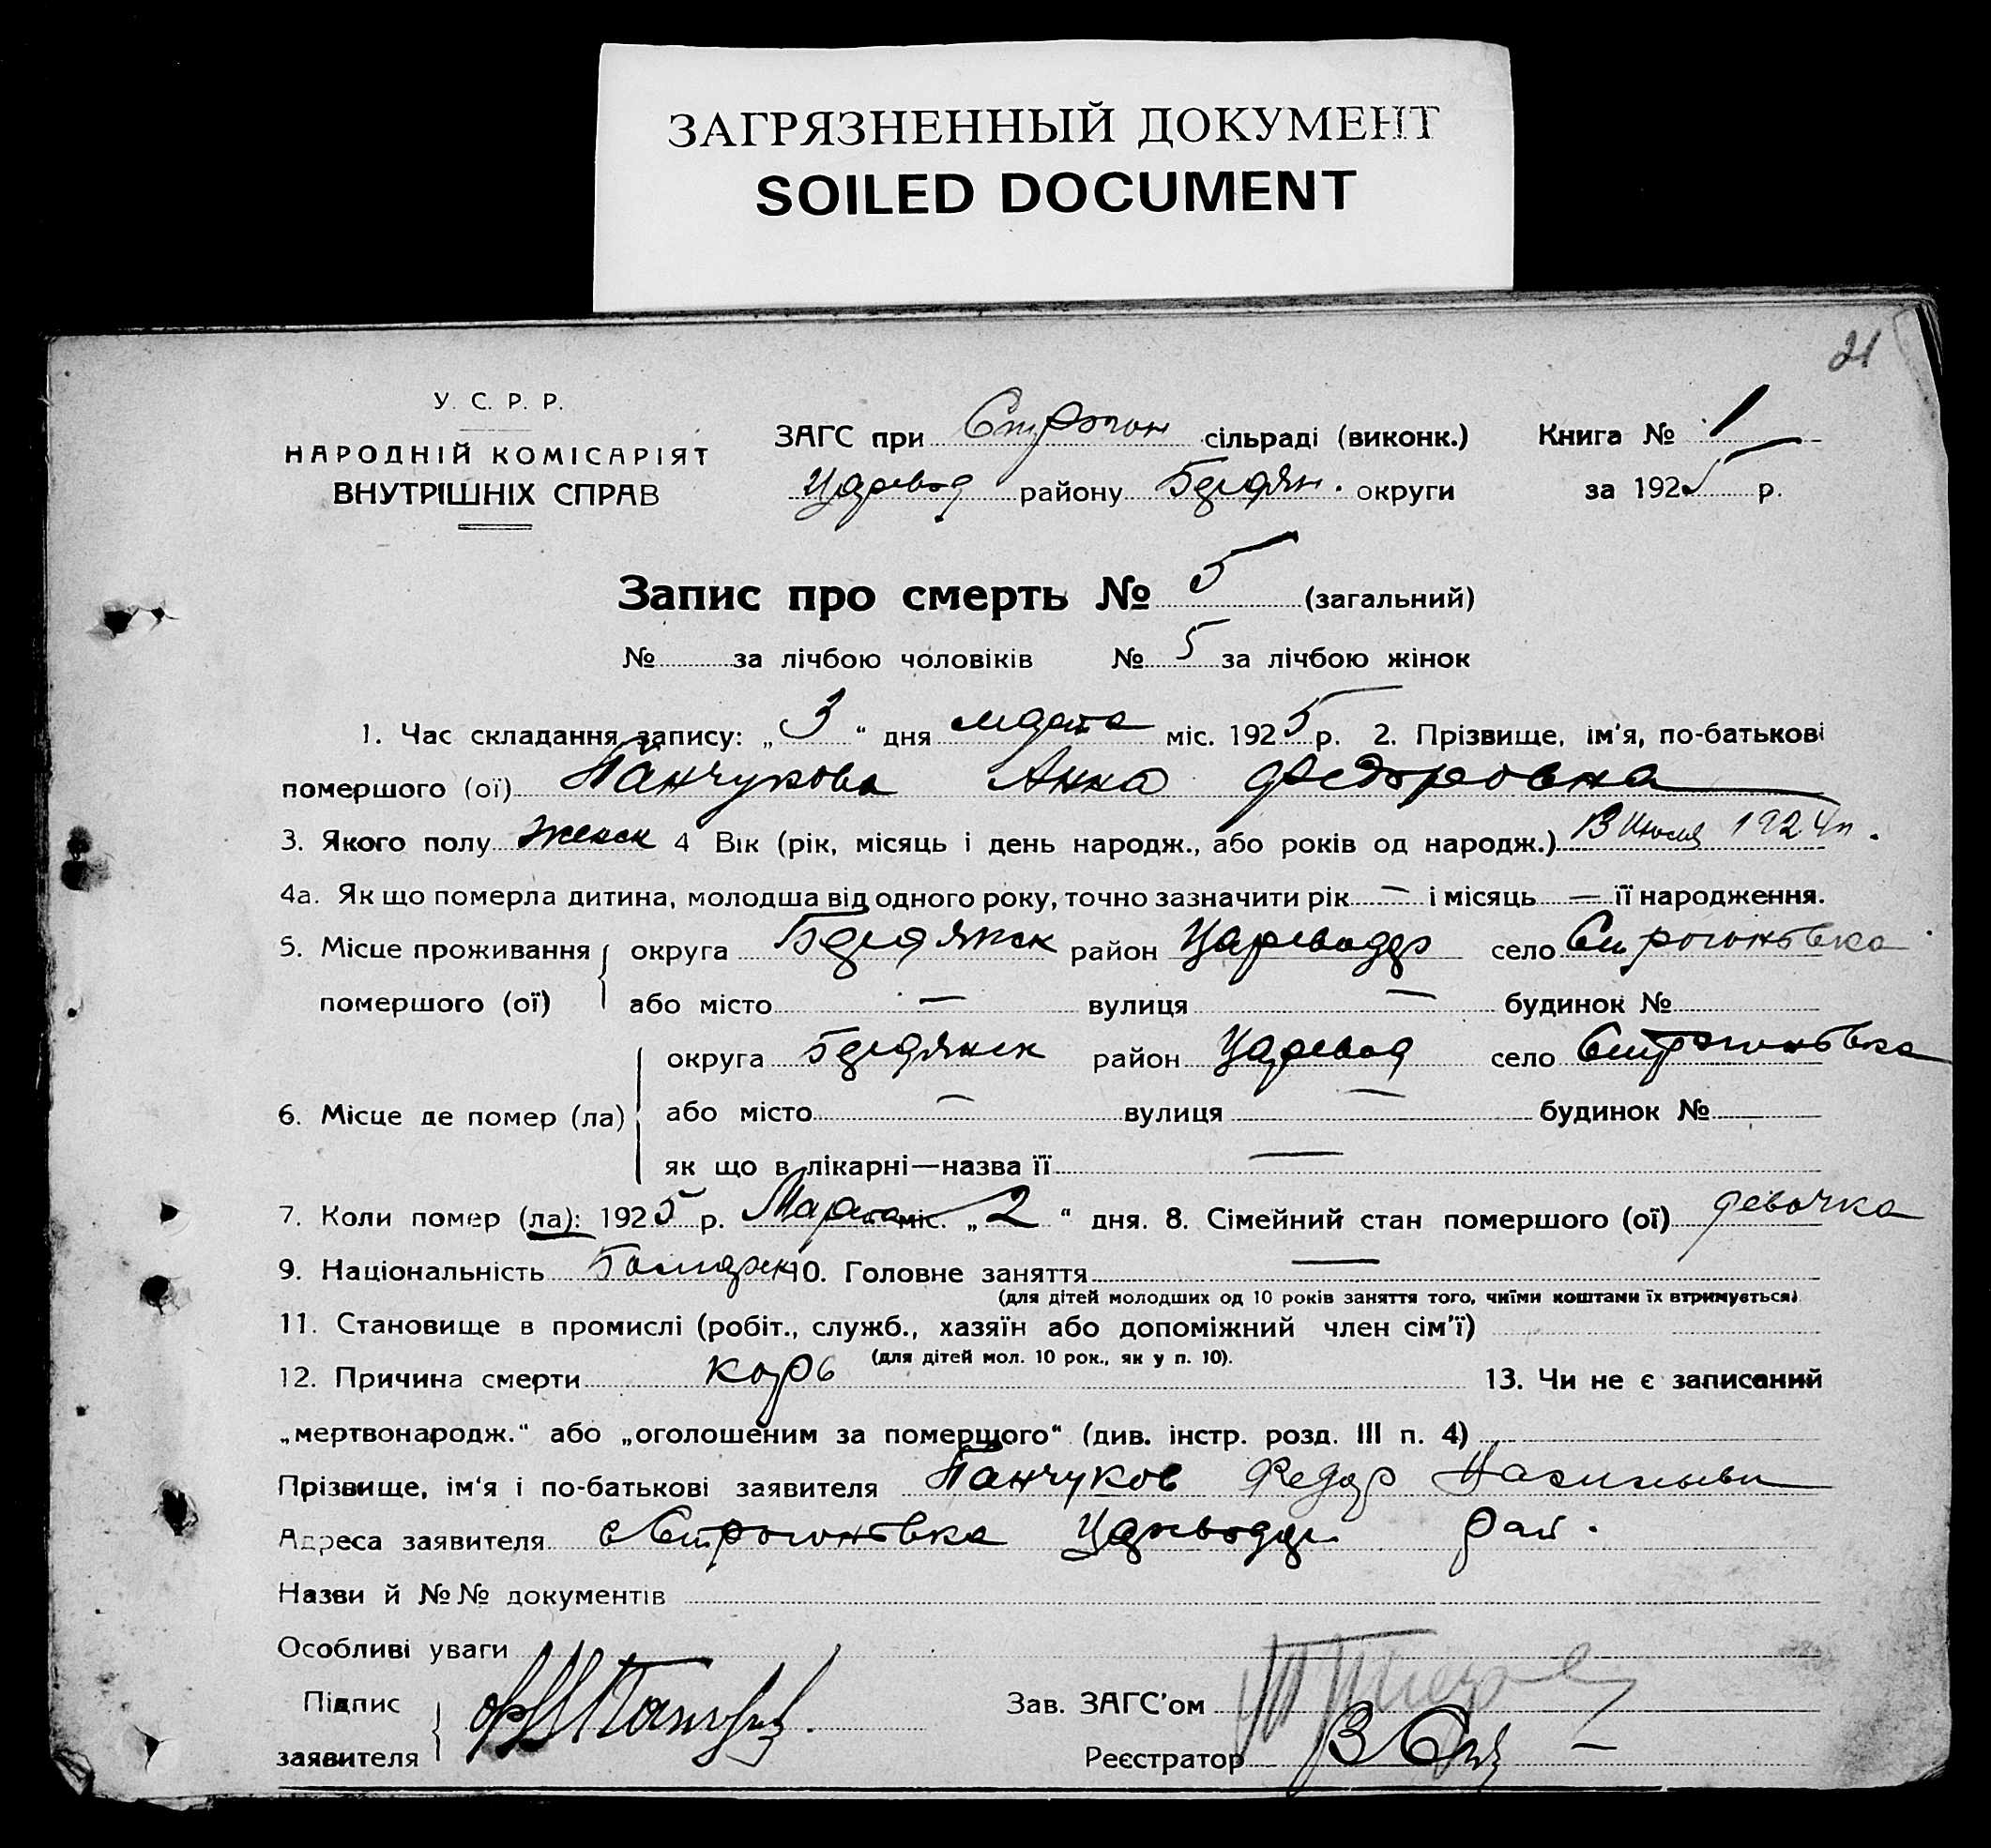 ЗАГРЯЗНЕННЫЙ ДОКУМЕНТ
SOILED DOCUMENT
21
У. С. Р. Р.
НАРОДНІЙ КОМІСАРІЯТ
ВНУТРІШНІХ СПРАВ
ЗАГС при Строгон сільраді (виконк.) Книга № 1
Царевод району Бердян. округи за 1925 р.
Запис про смерть № 5 (загальний)
№ за лічбою чоловіків № 5 за лічбою жінок
1. Час складання запису: „3“ дня марта міс. 1925 р. 2. Прізвище, ім'я, по-батькові
помершого (ої) Панчукова Анна Федоровна
3. Якого полу женск 4 Вік (рік, місяць і день народж., або років од народж.) 13 Июля 1924 г.
4а. Як що померла дитина, молодша від одного року, точно зазначити рік — і місяць — її народження.
5. Місце проживання округа Бердянск район Цареводар село Строгоновка
помершого (ої) або місто — вулиця — будинок №
округа Бердянск район Царевод село Строгоновка
6. Місце де помер (ла) або місто — вулиця — будинок №
як що в лікарні—назва її —
7. Коли помер (ла): 1925 р. Марта міс. „2“ дня. 8. Сімейний стан помершого (ої) девочка
9. Національність Болгарк 10. Головне заняття —
(для дітей молодших од 10 років заняття того, чиїми коштами їх втримується)
11. Становище в промислі (робіт., служб., хазяїн або допоміжний член сім'ї)
(для дітей мол. 10 рок., як у п. 10).
12. Причина смерти корь 13. Чи не є записаний
„мертвонародж.“ або „оголошеним за помершого“ (див. інстр. розд. III п. 4)
Прізвище, ім'я і по-батькові заявителя Панчуков Федор
Адреса заявителя с Строгоновка рай.
Назви й №№ документів
Особливі уваги
Підпис Зав. ЗАГС'ом
заявителя Реєстратор